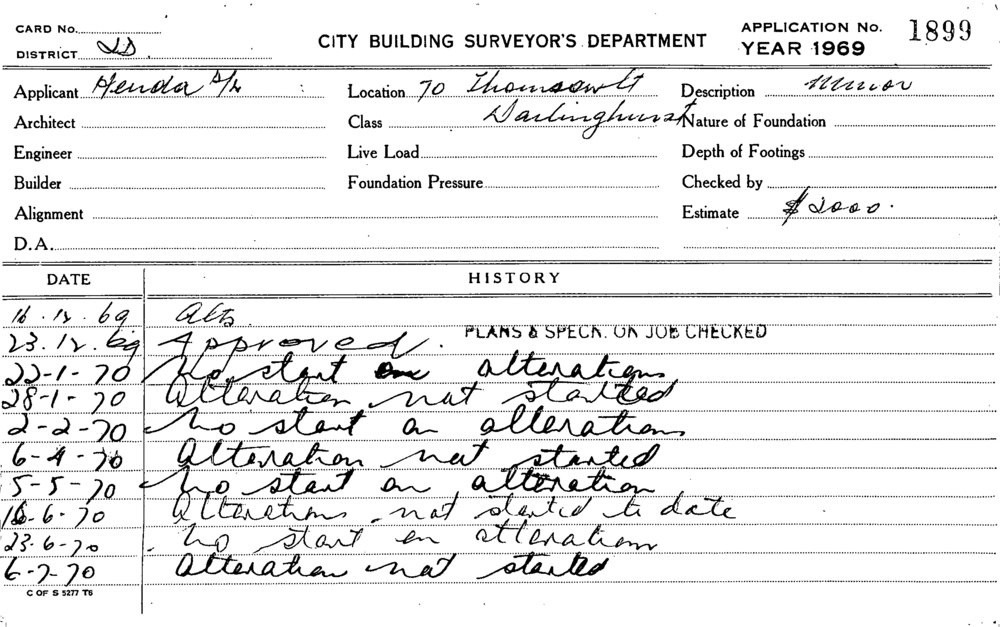 CARD No.
DISTRICT
CITY BUILDING SURVEYOR'S DEPARTMENT
APPLICATION No. 1899
YEAR 1969
Applicant
Location 70
Description Minor
Architect
Class Darlinghurst
Nature of Foundation
Engineer
Live Load
Depth of Footings
Builder
Foundation Pressure
Checked by
Alignment
Estimate $2000.
D.A.
DATE HISTORY
16.12.69 Alts.
23.12.69 Approved. PLANS & SPECN. ON JOB CHECKED
22-1-70 No start on alterations
28-1-70 Alteration not started
2-2-70 No start on alterations
6-4-70 Alteration not started
5-5-70 No start on alteration
16-6-70 Alterations not started to date
23-6-70 No start on alterations
6-7-70 Alteration not started
C OF S 5277 T6